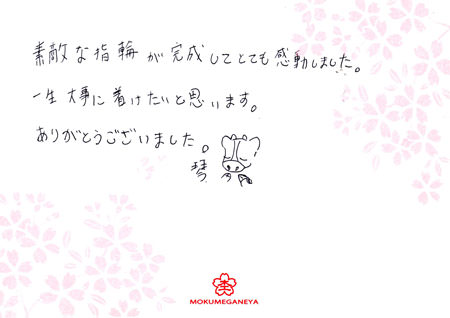 素敵な指輪が完成してとても感動しました。
一生大事に着けたいと思います。
ありがとうございました。
琴
MOKUMEGANEYA